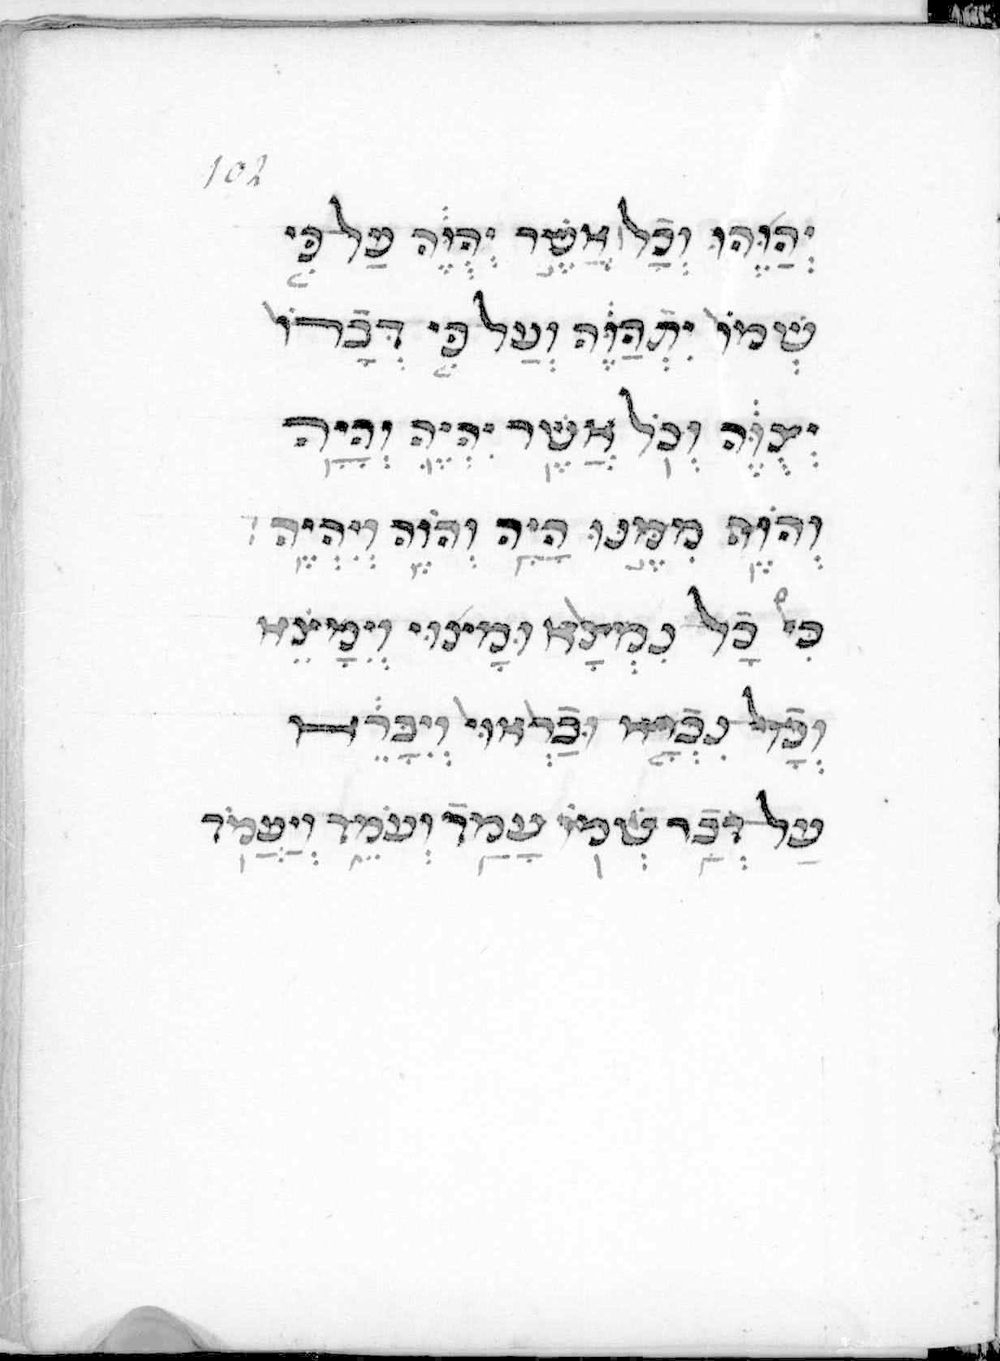 102
יְהַוֶּהוּ וְכָל אֲשֶׁר יְהֻוֶּה עַל פִּי
שְׁמוֹ יִתְהַוֶּה וְעַל פִּי דְּבָרוֹ
יְצֻוֶּה וְכֹל אֲשֶׁר יִהְיֶה וְהָיָה
וְהֹוֶה מִמֶּנּוּ הָיָה וְהֹוֶה וְיִהְיֶה
כִּי כָל נִמְצָא וּמָצוּי וְיִמָּצֵא
וְכָל נִבְרָא וּבָרְאוּי וְיִבָּרֵא
עַל דְּבַר שְׁמוֹ עָמַד וְעֹמֵד וְיַעֲמֹד